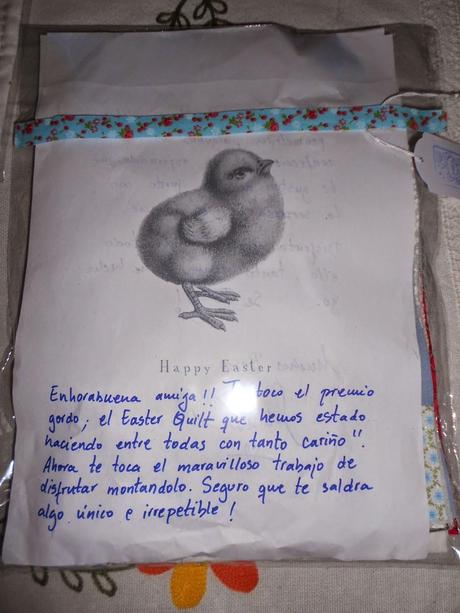 Happy Easter
Enhorabuena amiga!! Te toco el premio
gordo; el Easter Quilt que hemos estado
haciendo entre todas con tanto cariño".
Ahora te toca el maravilloso trabajo de
disfrutar montandolo. Seguro que te saldra
algo único e irrepetible!